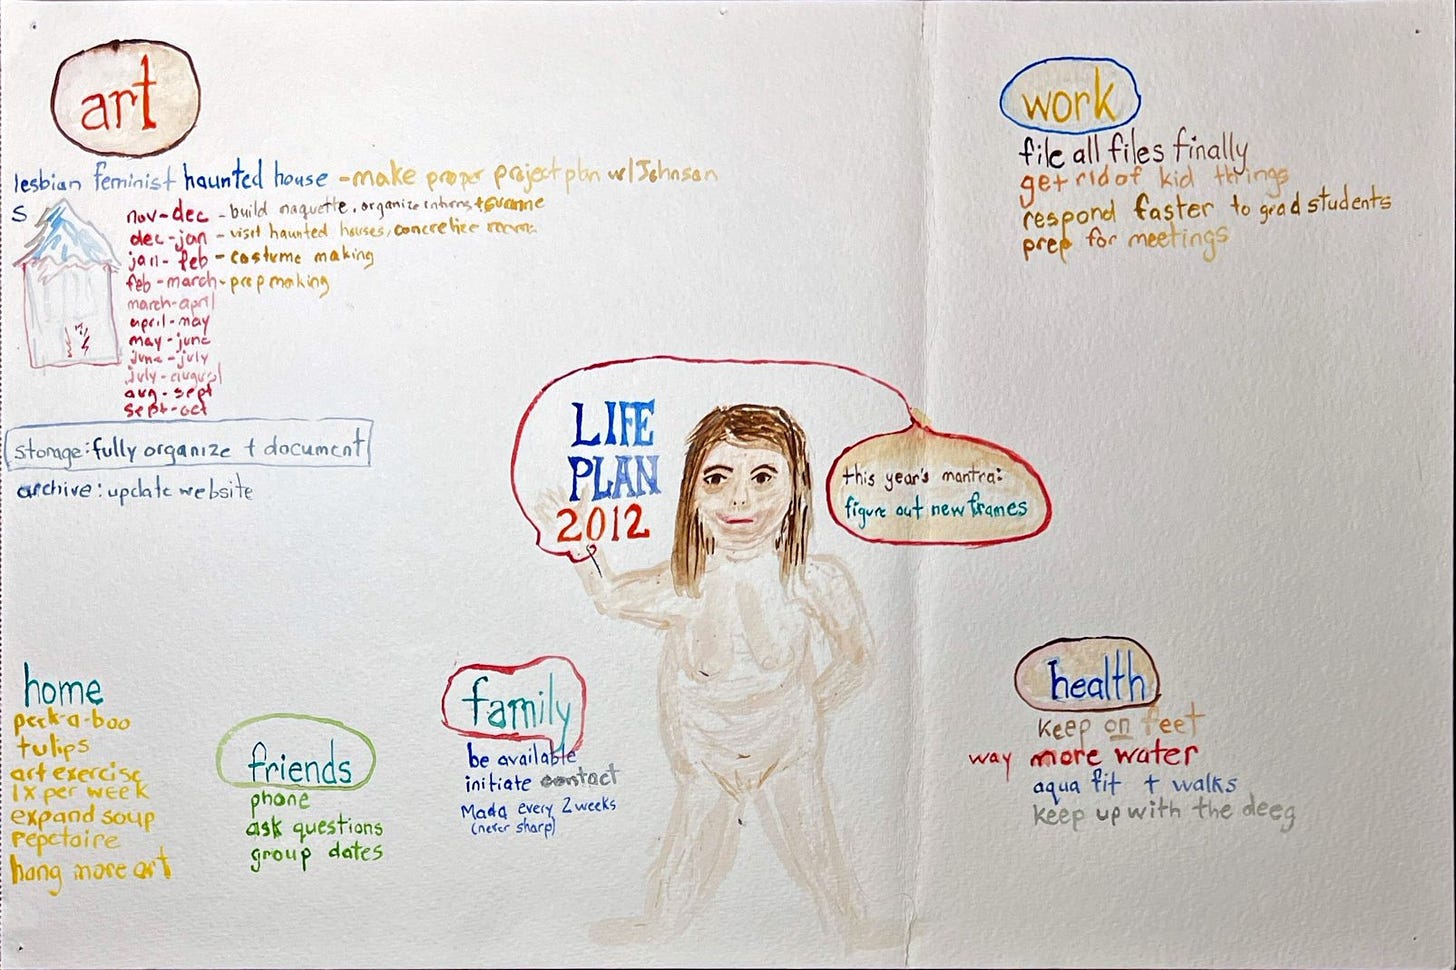 art
lesbian feminist haunted house - make proper project plan w/ Johnson
S
nov-dec - build maquette, organize interns +
dec-jan - visit haunted houses, concretize rooms
jan-feb - costume making
feb-march - prop making
march-april
april-may
may-june
june-july
july-august
aug-sept
sept-oct
storage: fully organize + document
archive: update website
work
file all files finally
get rid of kid things
respond faster to grad students
prep for meetings
LIFE
PLAN
2012
this year's mantra:
figure out new frames
home
peek-a-boo
tulips
art exercise
1x per week
expand soup
repetoire
hang more art
friends
phone
ask questions
group dates
family
be available
initiate contact
Mada every 2 weeks
(never sharp)
health
keep on feet
way more water
aqua fit + walks
keep up with the deeg